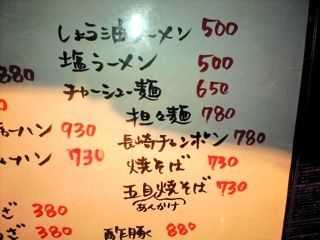 しょう油ラーメン 500
塩ラーメン 500
880
チャーシュー麺 650
担々麺 780
ーハン 930
長崎チャンポン 780
ーハン 730
焼そば 730
五目焼そば 730
(あんかけ)
ざ 380
酢豚 880
ざ 380